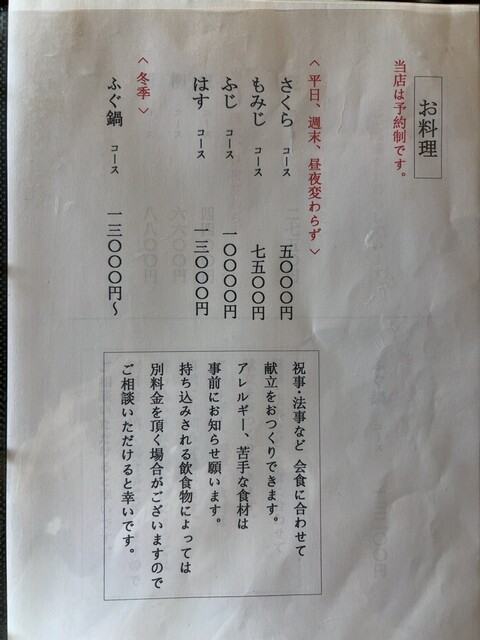 お料理
当店は予約制です。
〈平日、週末、昼夜変わらず〉
さくら コース 五〇〇〇円
もみじ コース 七五〇〇円
ふじ コース 一〇〇〇〇円
はす コース 一三〇〇〇円
〈冬季〉
ふぐ鍋 コース 一三〇〇〇円〜
祝事・法事など 会食に合わせて
献立をおつくりできます。
アレルギー、苦手な食材は
事前にお知らせ願います。
持ち込みされる飲食物によっては
別料金を頂く場合がございますので
ご相談いただけると幸いです。